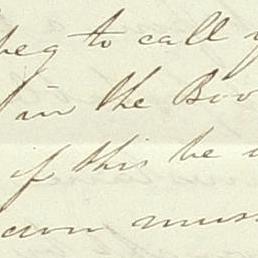 beg to call
in the Boo
if this be
own mus